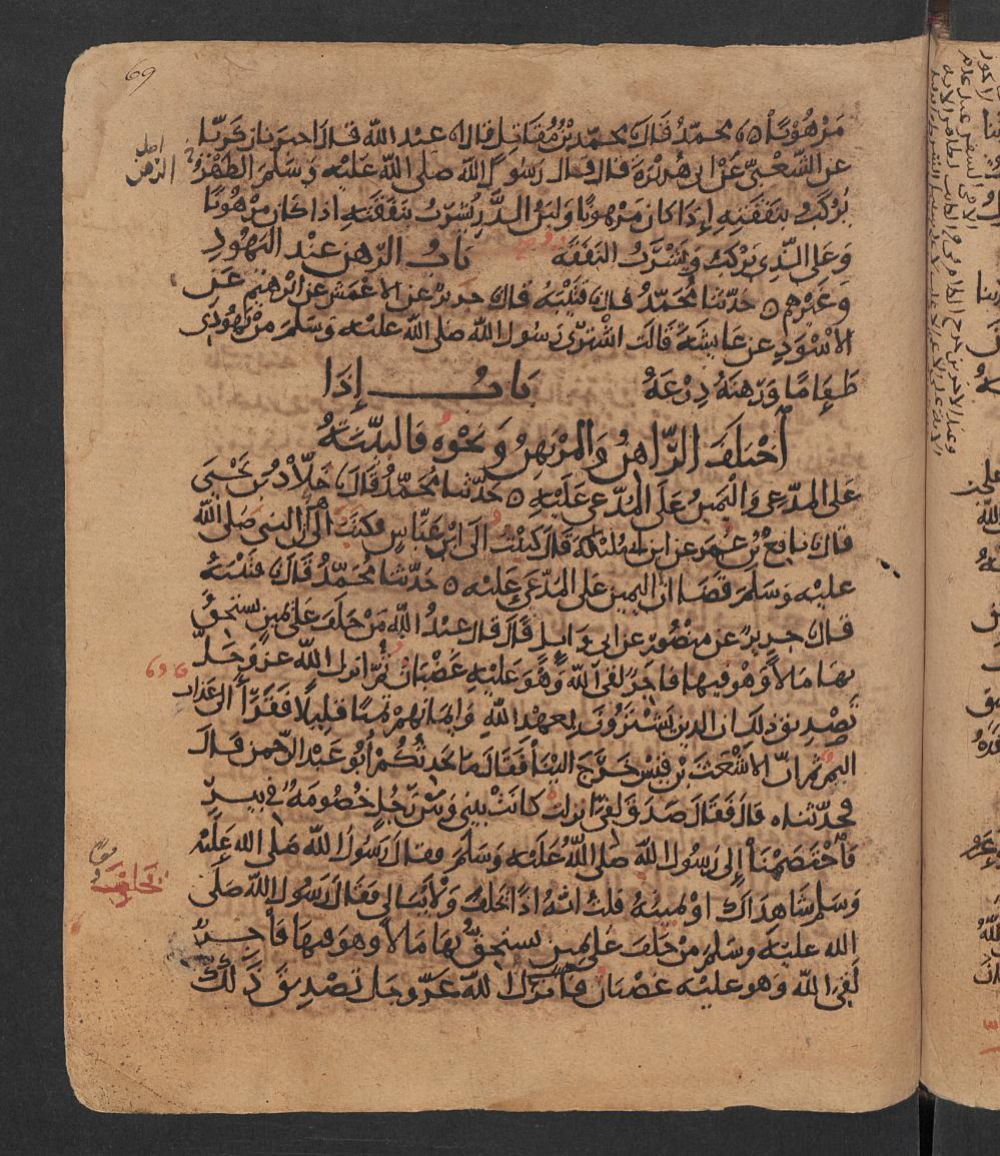 69
مرهونا ٥ محمد قال محمد بن مقاتل قال عبد الله قال اخبرنا زكريا
عن الشعبي عن ابي هريرة قال قال رسول الله صلى الله عليه وسلم الظهر
يركب بنفقته إذا كان مرهونا ولبن الدر يشرب بنفقته اذا كان مرهونا
وعلى الذي يركب ويشرب النفقه باب الرهن عند اليهود
وغيرهم ٥ حدثنا محمد قال قتيبه قال جرير عن الاعمش عن ابرهيم عن
الاسود عن عايشة قالت اشترى رسول الله صلى الله عليه وسلم من يهودي
طعاما ورهنه درعه باب إذا
اختلف الراهن والمرتهن ونحوه فالبينة
على المدعي واليمين على المدعى عليه ٥ حدثنا محمد قال خلاد بن يحيى
قال نافع بن عمر عن ابن ابي مليكة قال كتبت الى ابن عباس فكتب الي ان النبي صلى الله
عليه وسلم قضا ان اليمين على المدعى عليه ٥ حدثنا محمد قال قتيبة
قال جرير عن منصور عن ابي وايل قال قال عبد الله من حلف على يمين يستحق
بها مالا وهو فيها فاجر لقي الله وهو عليه غضبان ثم انزل الله عز وجل
تصديق ذلك ان الذين يشترون بعهد الله وايمانهم ثمنا قليلا فقرأ الى عذاب
اليم ثم ان الاشعث بن قيس خرج الينا فقال ما يحدثكم أبو عبد الرحمن قال
فحدثناه قال فقال صدق لفي انزلت كانت بيني وبين رجل خصومة في بير
فاختصمنا إلى رسول الله صلى الله عليه وسلم فقال رسول الله صلى الله عليه
وسلم شاهداك او يمينه قلت انه اذا يحلف ولا يبالي فقال رسول الله صلى
الله عليه وسلم من حلف على يمين يستحق بها مالا وهو فيها فاجر
لقي الله وهو عليه غضبان فأنزل الله عز وجل تصديق ذلك